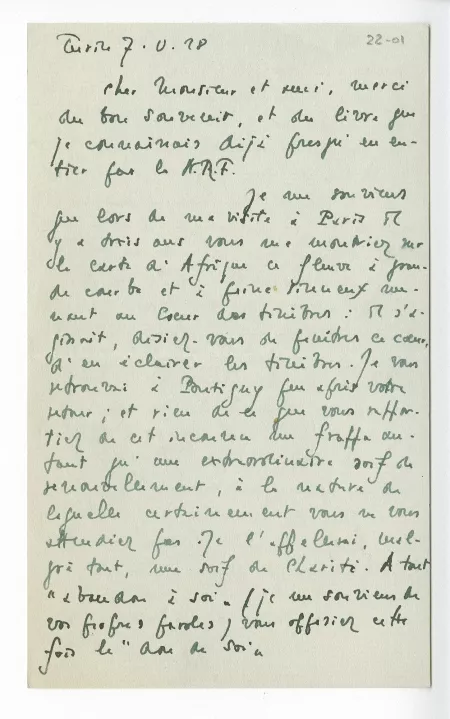 Turin 7.V.28
22-01
Cher Monsieur et ami, merci
du bon souvenir, et du livre que
je connaissais déjà presqu'en en-
tier par la N.R.F.
Je me souviens
que lors de ma visite à Paris il
y a trois ans vous me montriez sur
la carte d'Afrique ce fleuve à gran-
de courbe et à peine sinueux me-
nant au Coeur des ténèbres : Il s'a-
gissait, disiez-vous de pénétrer ce coeur,
d'en éclairer les ténèbres. Je vous
retrouvai à Pontigny peu après votre
retour ; et rien de ce que vous rappor-
tiez de cet inconnu me frappa au-
tant qu'une extraordinaire soif de
renouvellement, à la nature de
laquelle certainement vous ne vous
attendiez pas. Je l'appellerai, mal-
gré tout, une soif de Charité. A tout
"abandon à soi" (je me souviens de
vos propres paroles) vous opposiez cette
fois le "don de soi"